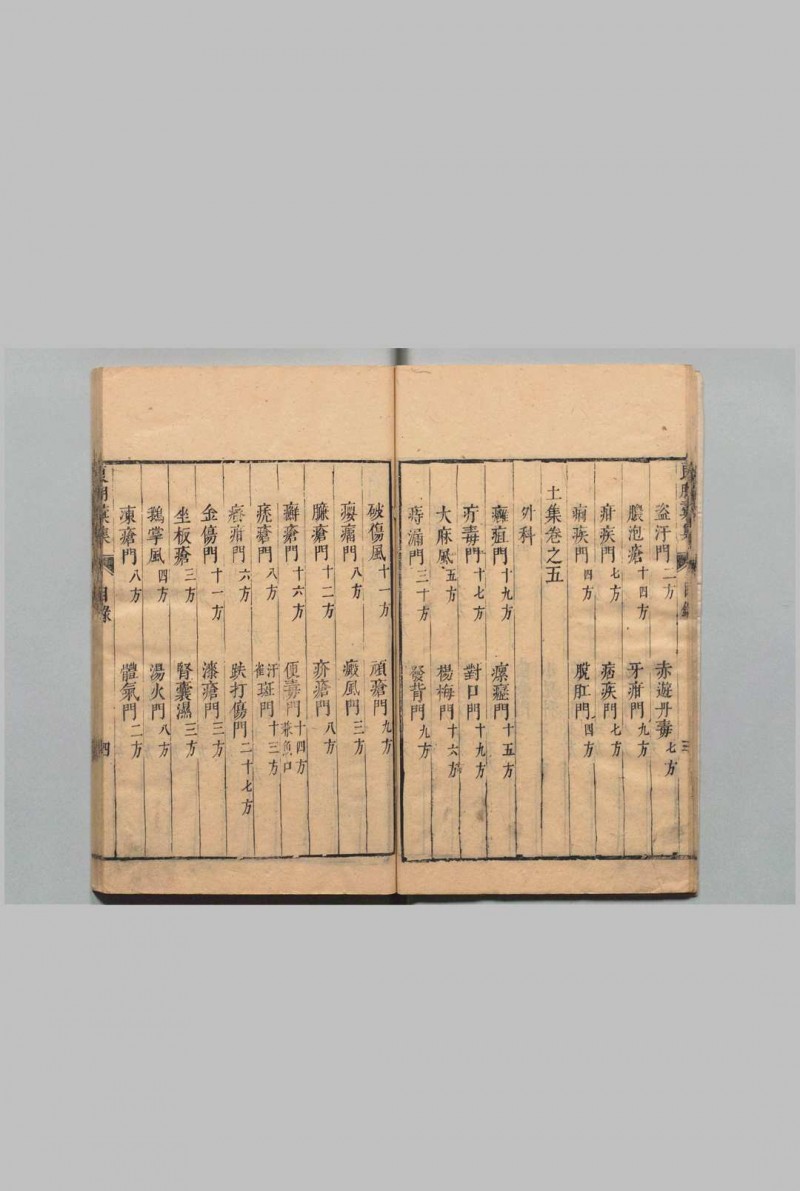 盜汗門二方 赤遊丹毒七方
膿泡瘡十四方 牙疳門九方
疳疾門七方 痞疾門七方
痢疾門四方 脫肛門四方
土集卷之五
外科
癰疽門十九方 瘰癧門十五方
疔毒門十七方 對口門十九方
大麻風五方 楊梅門十六方
痔漏門三十方 發背門九方
目錄 三
破傷風十一方 頑瘡門九方
癭瘤門八方 癜風門三方
臁瘡門十二方 疥瘡門八方
癬瘡門十六方 便毒門十四方兼魚口
禿瘡門八方 汗斑門雀十三方
瘊疳門六方 跌打傷門二十七方
金傷門十一方 漆瘡門三方
坐板瘡三方 腎囊濕三方
鵝掌風四方 湯火門八方
凍瘡門八方 體氣門二方
良朋彙集 目錄 四